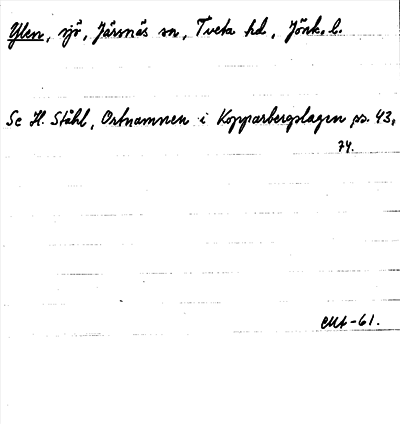 Ylen, sjö, Järsnäs sn, Tveta hd, Jönk. l.
Se H. Ståhl, Ortnamnen i Kopparbergslagen ss. 43,
74.
-61.